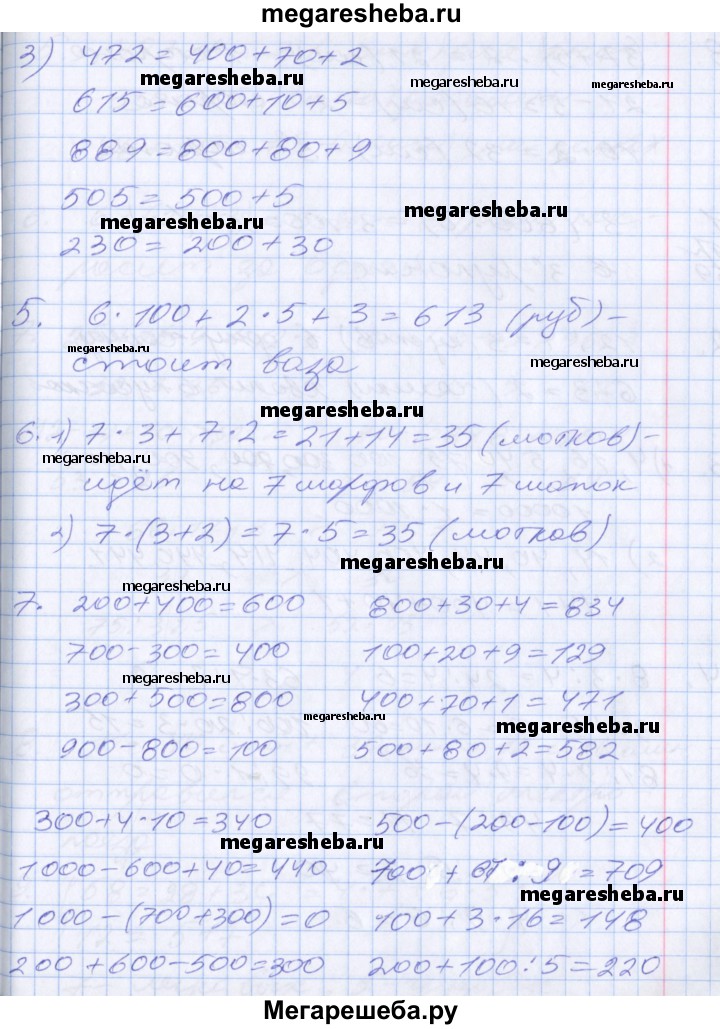 megaresheba.ru
3) 472 = 400+70+2
megaresheba.ru megaresheba.ru megaresheba.ru
615 = 600+10+5
889 = 800+80+9
505 = 500+5
megaresheba.ru megaresheba.ru
230 = 200+30
5. 6·100+2·5+3=613 (руб)-
megaresheba.ru megaresheba.ru
стоит ваза
megaresheba.ru
6. 1) 7·3+7·2=21+14=35 (мотков)-
megaresheba.ru
идёт на 7 шарфов и 7 шапок
2) 7·(3+2)=7·5=35 (мотков)
megaresheba.ru
megaresheba.ru
7. 200+400=600 800+30+4=834
700-300=400 100+20+9=129
megaresheba.ru
300+500=800 400+70+1=471
megaresheba.ru megaresheba.ru
900-800=100 500+80+2=582
300+4·10=340 500-(200-100)=400
megaresheba.ru
1000-600+40=440 700+ : 9=709
megaresheba.ru
1000-(700+300)=0 100+3·16=148
200+600-500=300 200+100:5=220
Мегарешеба.ру